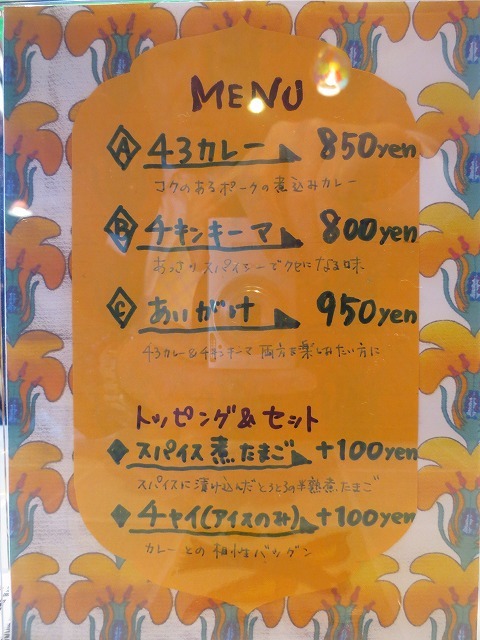 MENU
A 43カレー 850yen
コクのあるポークの煮込みカレー
B チキンキーマ 800yen
あっさりスパイシーでクセになる味
C あいがけ 950yen
43カレー&チキンキーマ 両方を楽しみたい方に
トッピング&セット
スパイス煮たまご +100yen
スパイスに漬け込んだとろとろの半熟煮たまご
チャイ(アイスのみ) +100yen
カレーとの相性バツグン